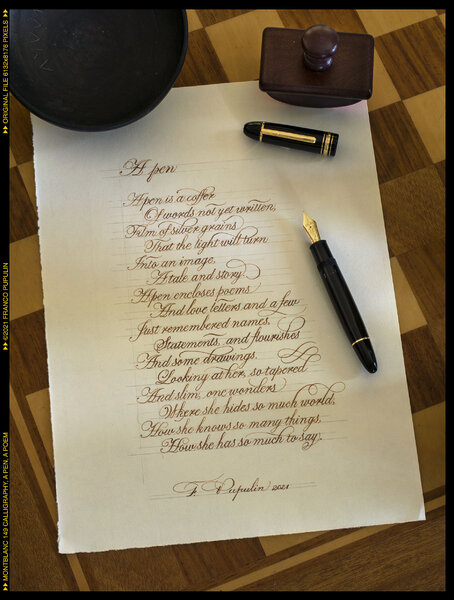 A pen
A pen is a coffer
Of words not yet written,
Film of silver grains
That the light will turn
Into an image,
A tale and story.
A pen encloses poems
And love letters and a few
Just remembered names,
Statements, and flourishes
And some drawings.
Looking at her, so tapered
And slim, one wonders
Where she hides so much world,
How she knows so many things,
How she has so much to say.
F. Pupulin 2021
MONTBLANC 149 CALLIGRAPHY, A PEN, A POEM
©2021 FRANCO PUPULIN
ORIGINAL FILE 6132x8176 PIXELS